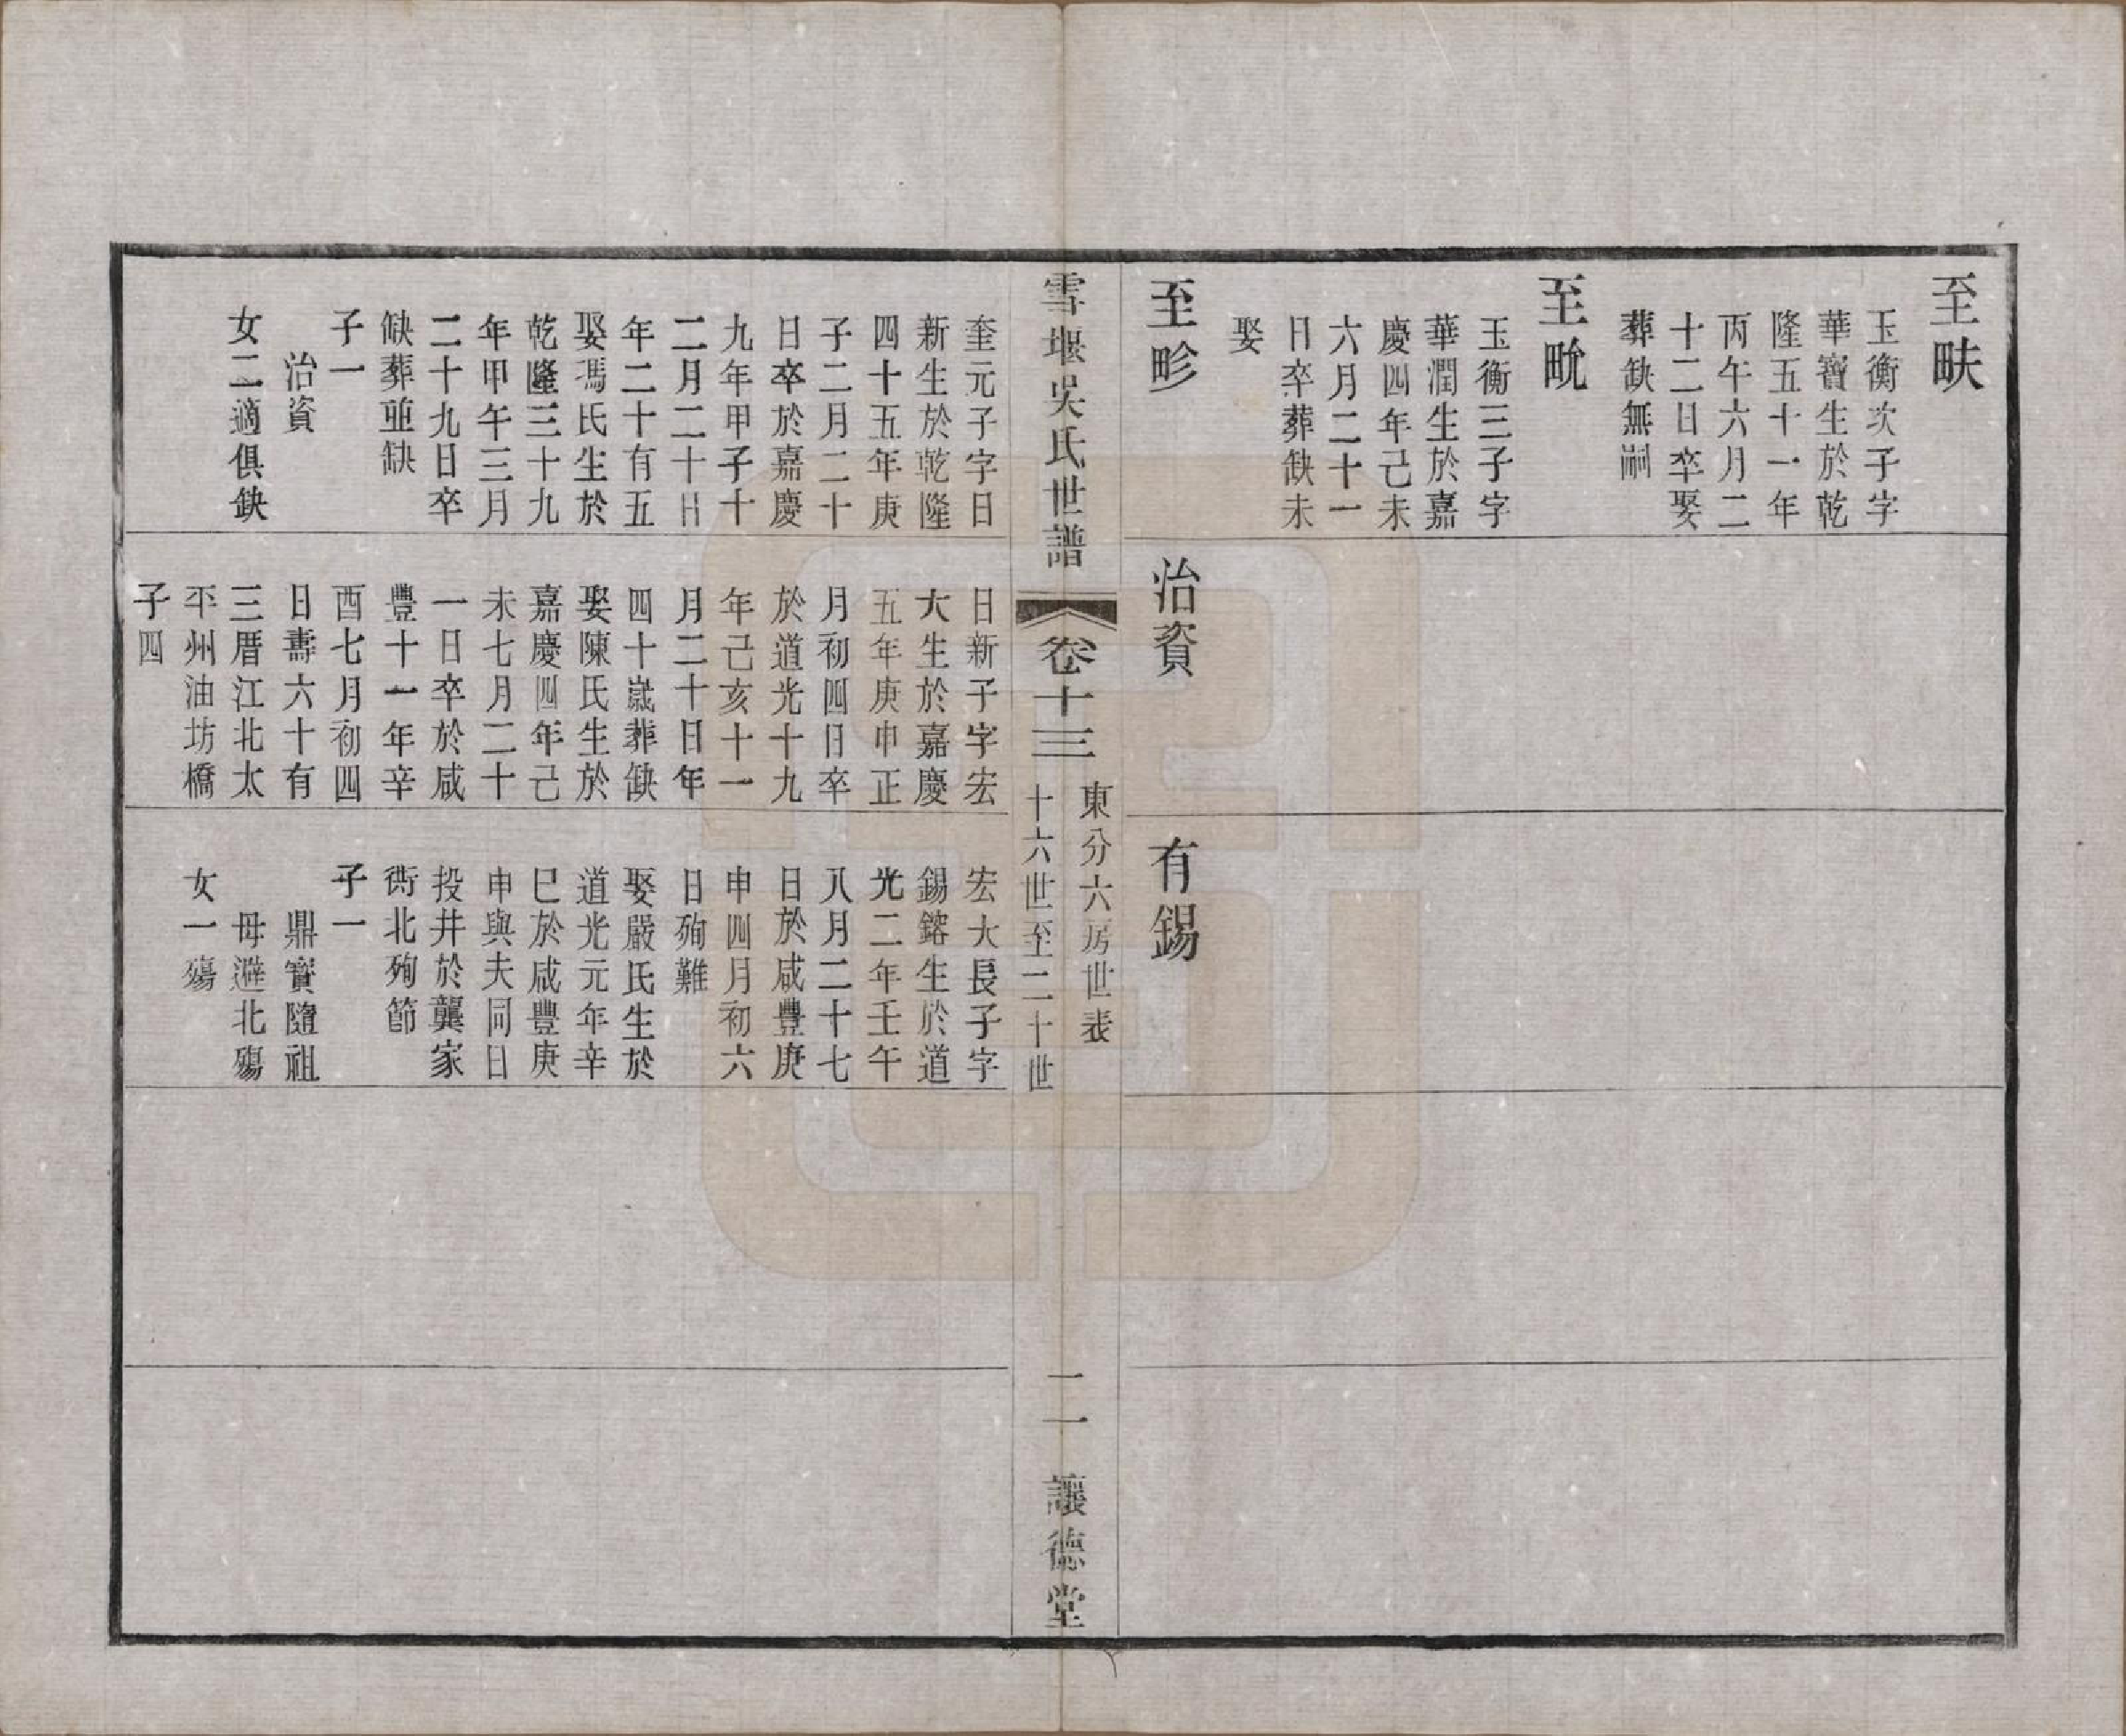 至畉
玉衡次子字
華寶生於乾
隆五十一年
丙午六月二
十二日卒娶
葬缺無嗣
至畮
玉衡三子字
華潤生於嘉
慶四年己未
六月二十一
日卒葬缺未
娶
至畛
治資
有錫
雪堰吳氏世譜
卷十三
東分六房世表
十六世至二十世
二
讓德堂
奎元子字日
新生於乾隆
四十五年庚
子二月二十
日卒於嘉慶
九年甲子十
二月二十日
年二十有五
娶馮氏生於
乾隆三十九
年甲午三月
二十九日卒
缺葬並缺
子一
治資
女二適俱缺
日新子字宏
大生於嘉慶
五年庚申正
月初四日卒
於道光十九
年己亥十一
月二十日年
四十歲葬缺
娶陳氏生於
嘉慶四年己
未七月二十
一日卒於咸
豐十一年辛
酉七月初四
日壽六十有
三厝江北太
平州油坊橋
子四
宏大長子字
錫鎔生於道
光二年壬午
八月二十七
日於咸豐庚
申四月初六
日殉難
娶嚴氏生於
道光元年辛
巳於咸豐庚
申與夫同日
投井於龔家
衖北殉節
子一
鼎寶隨祖
母避北殤
女一殤